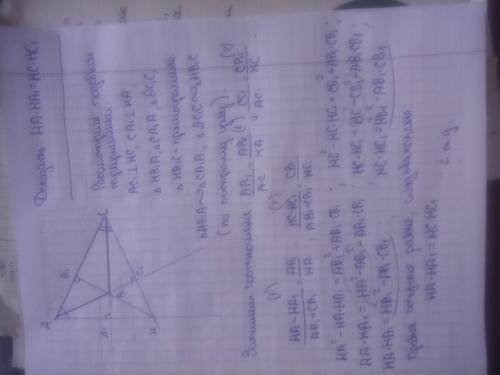 Доказать HA·HA₁=HC·HC₁
Рассмотрим подобны
треугольники
AC₁⊥HC, CA₁⊥HA,
△HB₁A, △CA₁A, △AC₁C,
△HB₁C - прямоугольные
△HB₁A∼△CA₁A, △AC₁C∼△HB₁C
(по острому углу).
A B₁ C C₁ B A₁ H
Запишем соотношения
AA₁/AC = AB₁/HA (1) CC₁/AC = CB₁/HC (2)
(1) (2)
HA-HA₁/AB₁+CB₁ = AB₁/HA , HC-HC₁/AB₁+CB₁ = CB₁/HC
HA²-HA·HA₁=AB₁²+AB₁·CB₁ ; HC²-HC·HC₁=CB₁²+AB₁·CB₁ ;
HA·HA₁=HA²-AB₁²-AB₁·CB₁ ; HC·HC₁=HC²-CB₁²-AB₁·CB₁ ;
HA·HA₁=HB₁²-AB₁·CB₁ ; HC·HC₁=HB₁²-AB₁·CB₁
Правые стороны равны, следовательно
HA·HA₁=HC·HC₁
ч.т.д.